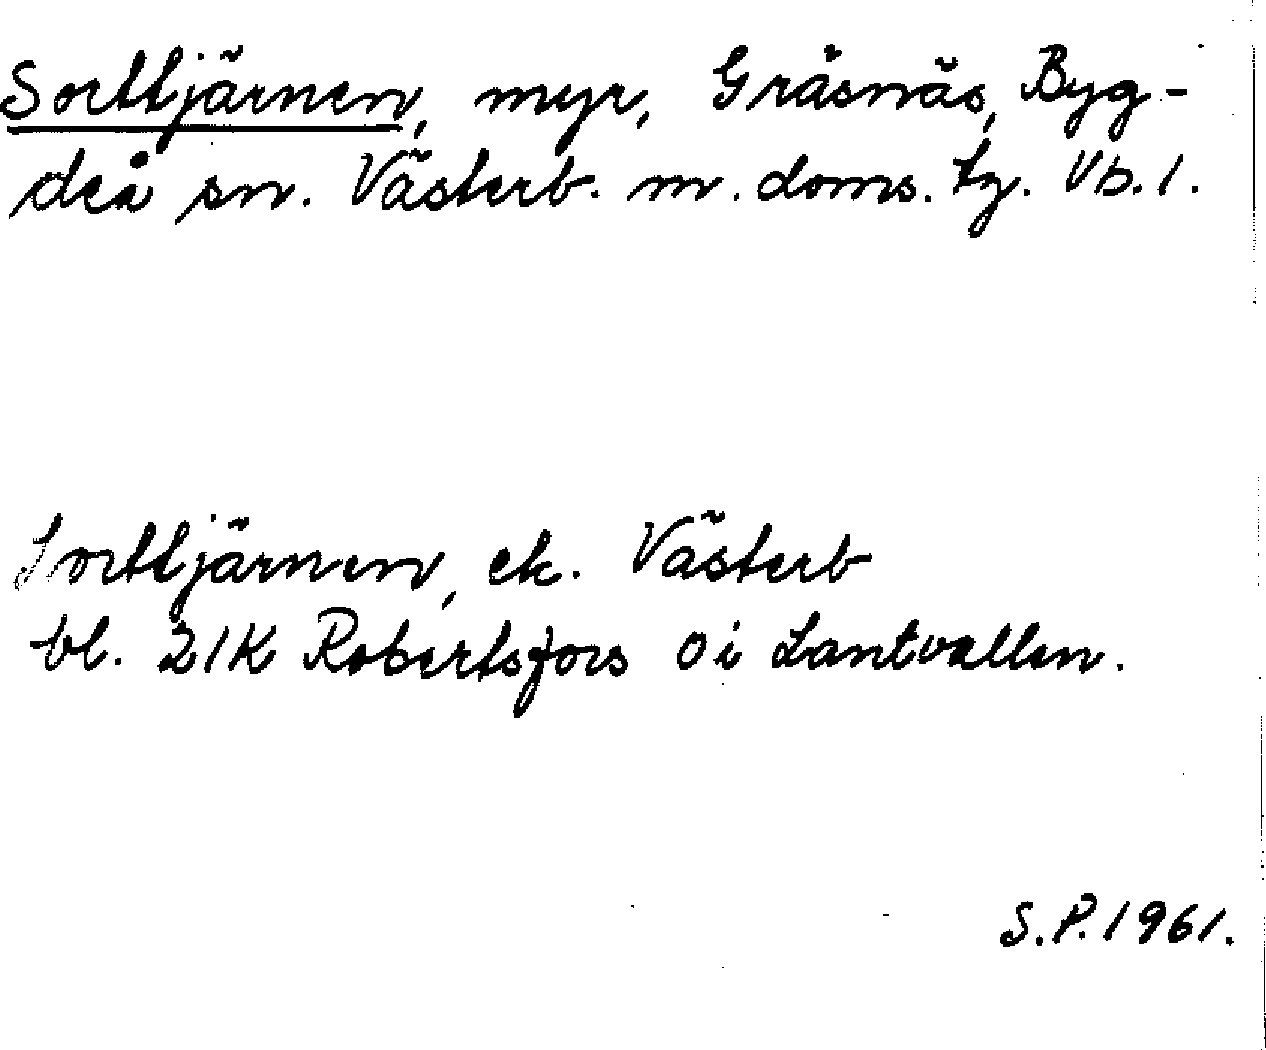 Sorttjärnen, myr, Gräsnäs, Byg-
deå sn. Västerb. m. doms. tg. Vb. 1.
Sorttjärnen, ek. Västerb
bl. 21K Robertsfors o i Lantvallen.
S.P. 1961.